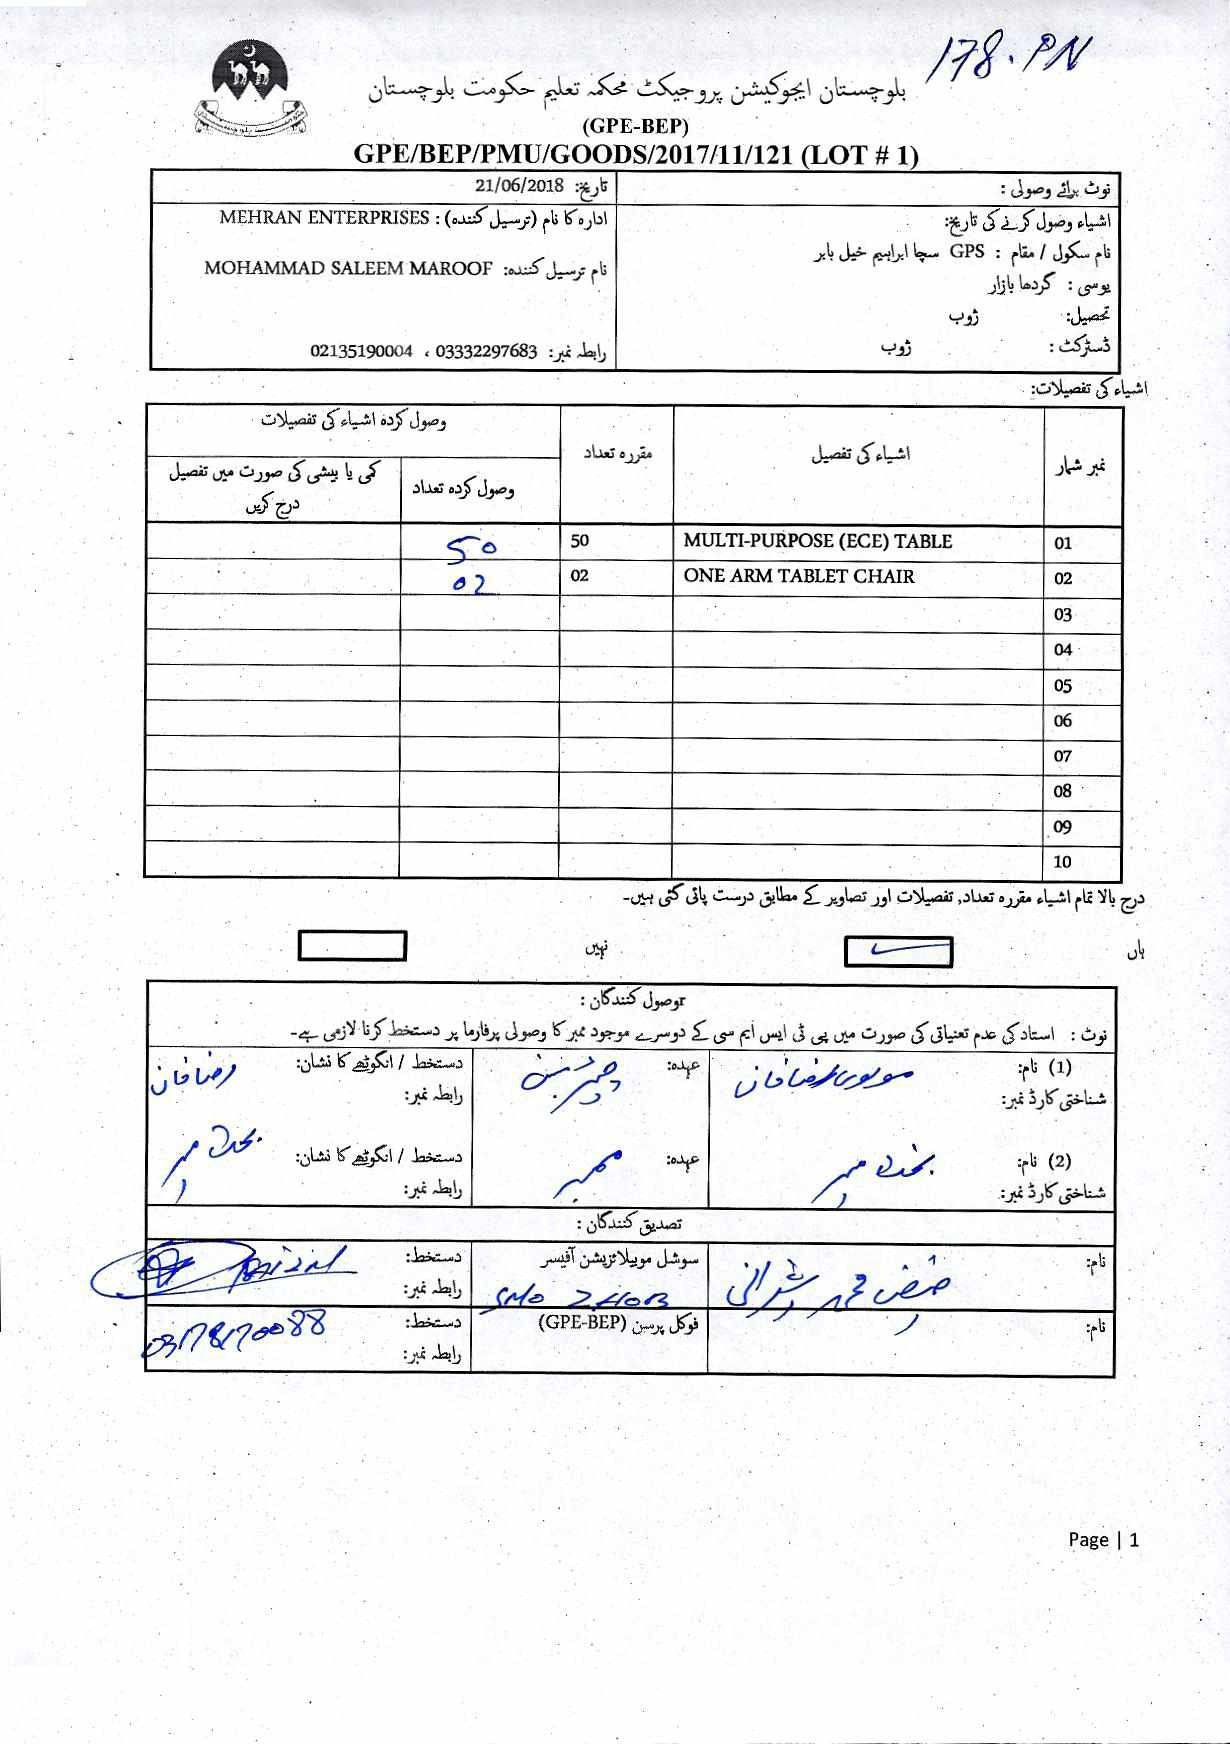 178.PN
بلوچستان ایجوکیشن پروجیکٹ محکمہ تعلیم حکومت بلوچستان
(GPE-BEP)
GPE/BEP/PMU/GOODS/2017/11/121 (LOT # 1)
نوٹ برائے وصولی :
تاریخ: 21/06/2018
اشیاء وصول کرنے کی تاریخ:
نام سکول / مقام : GPS سچا ابراہیم خیل بابر
یوسی : گردھا بازار
تحصیل: ژوب
ڈسٹرکٹ : ژوب
ادارہ کا نام (ترسیل کنندہ) : MEHRAN ENTERPRISES
نام ترسیل کنندہ: MOHAMMAD SALEEM MAROOF
رابطہ نمبر: 03332297683 ، 02135190004
اشیاء کی تفصیلات:
نمبر شمار اشیاء کی تفصیل مقررہ تعداد وصول کردہ اشیاء کی تفصیلات
وصول کردہ تعداد کمی یا بیشی کی صورت میں تفصیل درج کریں
01 MULTI-PURPOSE (ECE) TABLE 50 50
02 ONE ARM TABLET CHAIR 02 02
03
04
05
06
07
08
09
10
درج بالا تمام اشیاء مقررہ تعداد, تفصیلات اور تصاویر کے مطابق درست پائی گئی ہیں۔
ہاں نہیں
وصول کنندگان :
نوٹ : استاد کی عدم تعنیاتی کی صورت میں پی ٹی ایس ایم سی کے دوسرے موجود ممبر کا وصولی پرفارما پر دستخط کرنا لازمی ہے۔
(1) نام: مولوی رضا خان عہدہ: چیرمین دستخط / انگوٹھے کا نشان: رضا خان
شناختی کارڈ نمبر: رابطہ نمبر:
(2) نام: عہدہ: ممبر دستخط / انگوٹھے کا نشان:
شناختی کارڈ نمبر: رابطہ نمبر:
تصدیق کنندگان :
نام: سوشل موبیلائزیشن آفیسر دستخط:
SMO ZHOB رابطہ نمبر:
نام: فوکل پرسن (GPE-BEP) دستخط:
رابطہ نمبر:
Page | 1